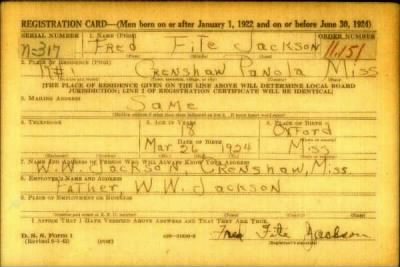 REGISTRATION CARD—(Men born on or after January 1, 1922 and on or before June 30, 1924)
SERIAL NUMBER 1. NAME (Print) ORDER NUMBER
N-317 Fred Fite Jackson 11,151
(First) (Middle) (Last)
2. PLACE OF RESIDENCE (Print)
Rt#1 Crenshaw Panola Miss
[THE PLACE OF RESIDENCE GIVEN ON THE LINE ABOVE WILL DETERMINE LOCAL BOARD
JURISDICTION; LINE 2 OF REGISTRATION CERTIFICATE WILL BE IDENTICAL]
3. MAILING ADDRESS
Same
4. TELEPHONE 5. AGE IN YEARS 6. PLACE OF BIRTH
18 Oxford
DATE OF BIRTH
Mar 26 1924 Miss
7. NAME AND ADDRESS OF PERSON WHO WILL ALWAYS KNOW YOUR ADDRESS
W.W. Jackson, Crenshaw, Miss
8. EMPLOYER'S NAME AND ADDRESS
Father, W.W. Jackson
9. PLACE OF EMPLOYMENT OR BUSINESS
I AFFIRM THAT I HAVE VERIFIED ABOVE ANSWERS AND THAT THEY ARE TRUE.
D. S. S. Form 1
Fred Fite Jackson